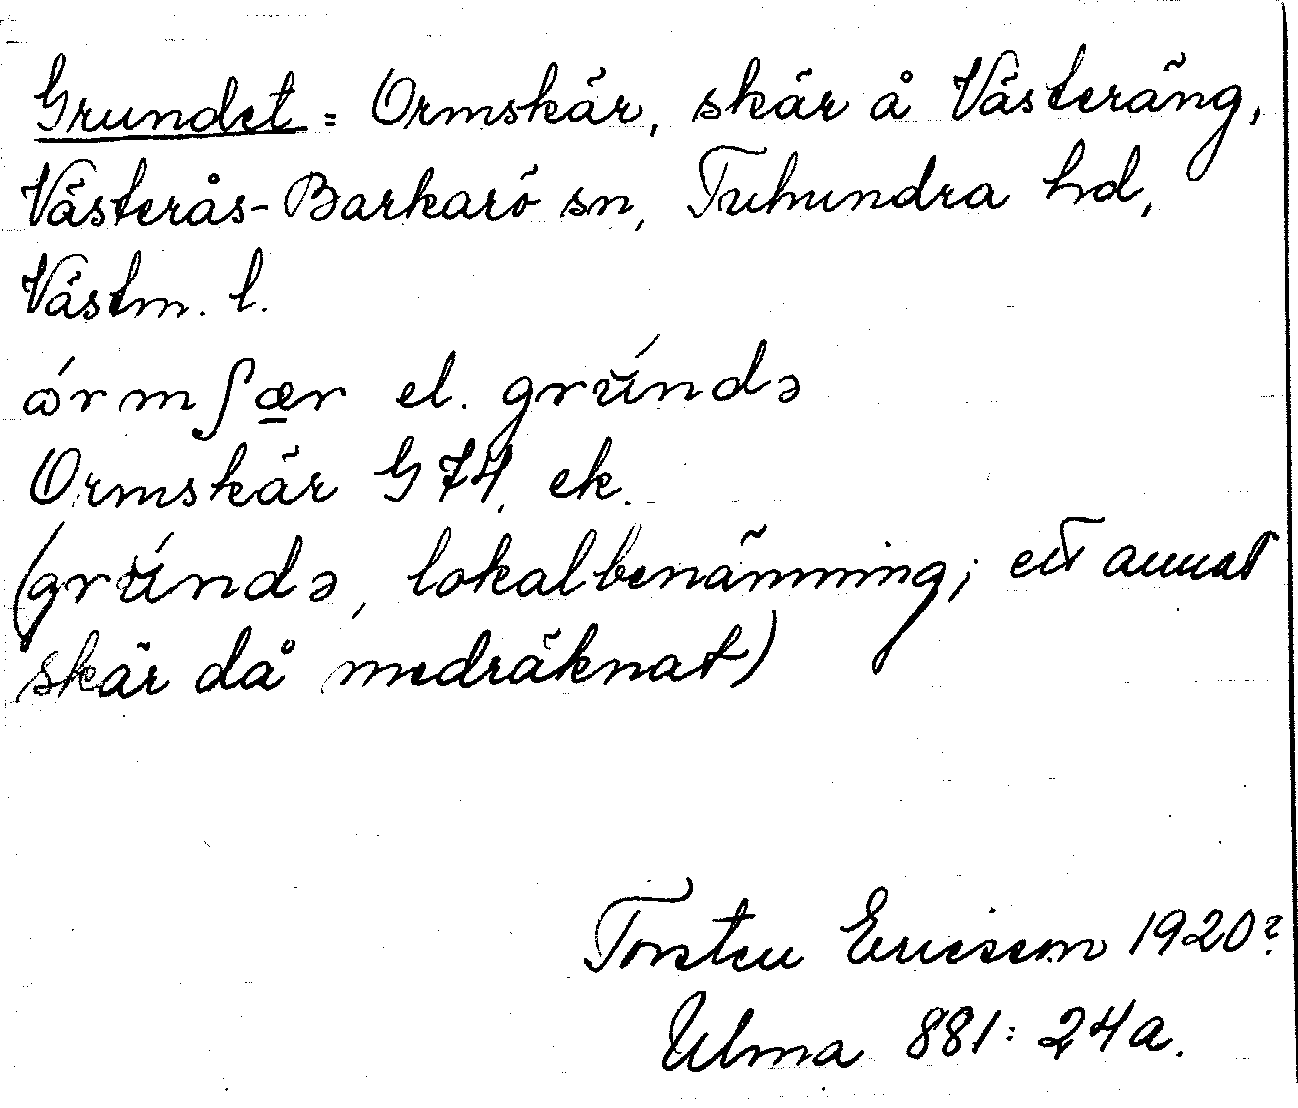 Grundet = Ormskär, skär å Västeräng,
Västerås-Barkarö sn, Tuhundra hd,
Västm. l.
ǿrmʃæ̲r el. grŭ́ndə
Ormskär G 74, ek.
(grŭ́ndə, lokalbenämning; ett annat
skär då medräknat)
Torsten Ericson 1920?
Ulma 881:24a.